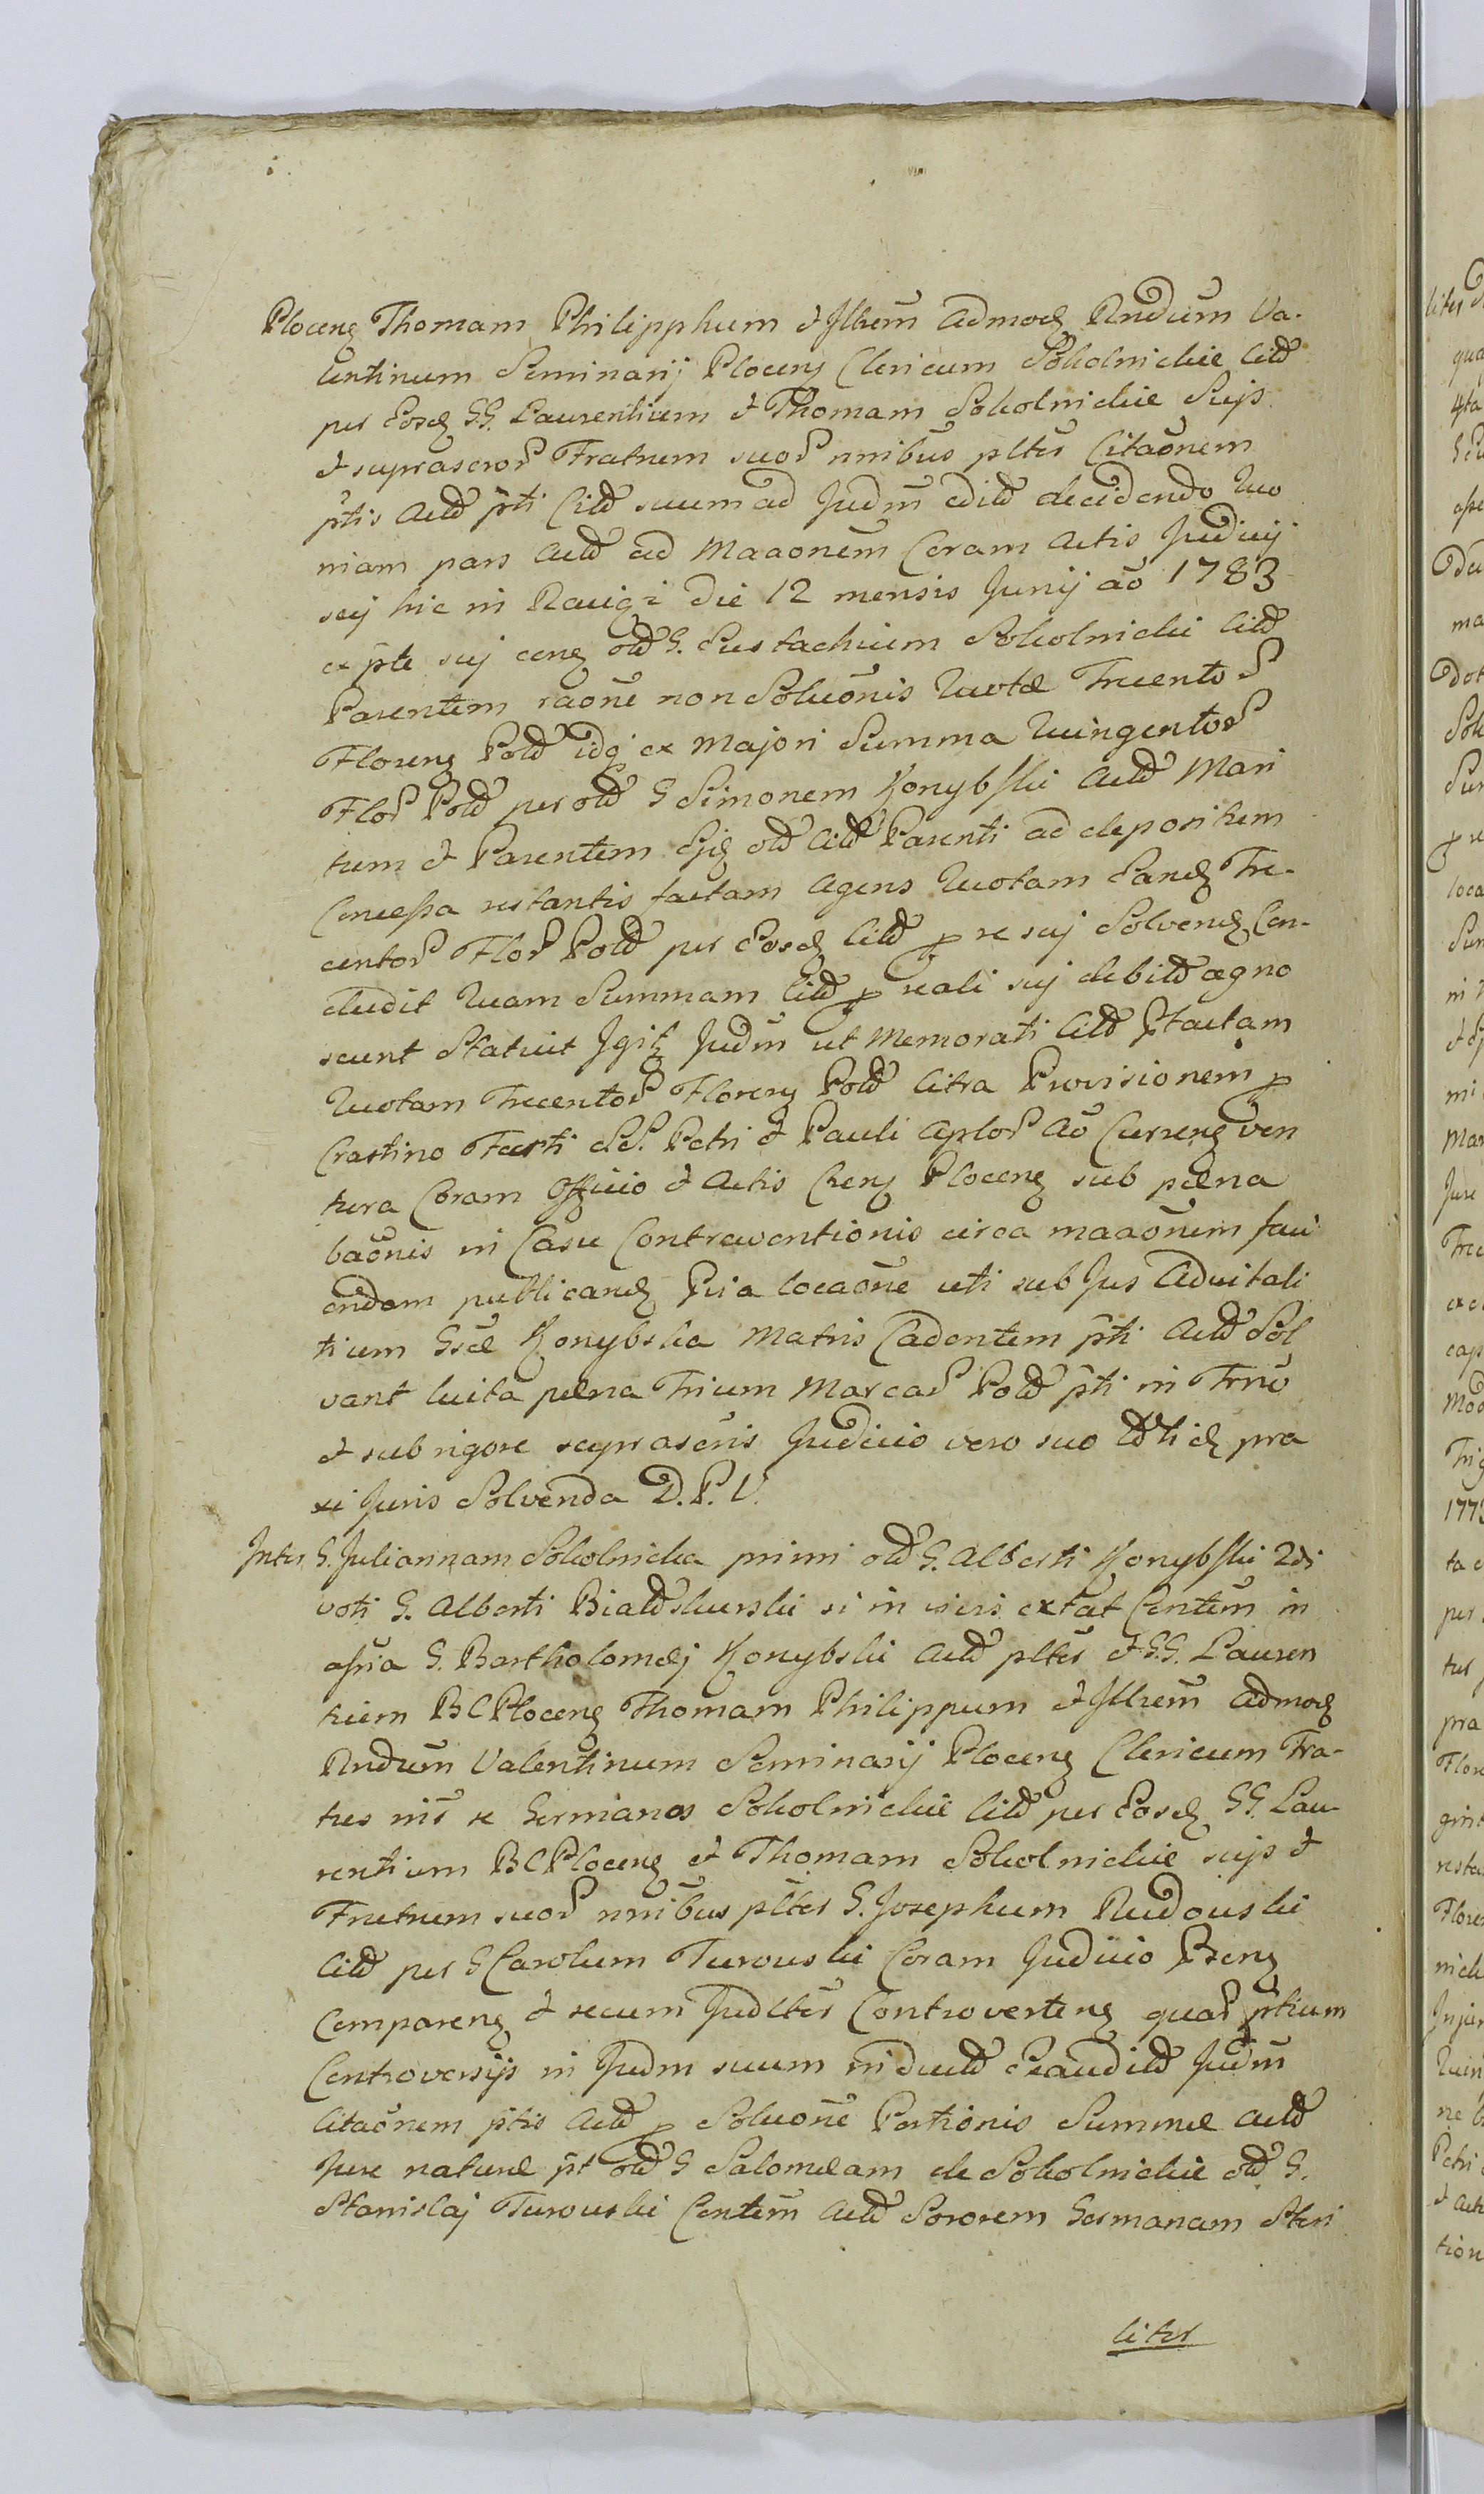 Plocens Thomam Philipphum & Illrem admod Rndum Va-
lentinum Seminarij Plocens Clericum Sokolnickie Citd
per Eosd GG. Laurentium & Thomam Sokolnickie Suis
& suprascror Fratrum suor nnibus plter Citaonem
ptis Actd pti Citd suum ad Judm edictd decidendo Quo
niam pars Actd ad Maaonem Coram Actis Judicij
sej hic in Raciąż die 12 mensis Junij ao 1783
ex pte sui cens old G. Eustachium Sokolnicki Citd
Parentem raone non Soluonis Quotæ Trecentor
Florens Pold idq ex Majori Summa Quingentor
Flor Pold per old G Simonem Konybski Actd Mari
tum & Parentem Ejd old Citd Parenti ad depositum
Concessa restantis factam agens Quotam Eand Tre-
centor Flor Pold per Eosd Citd p re sej Solvend Con-
cludit Quam Summam Citd p reali sej debitd agno
scunt Statuit Igitr Judm ut Memorati Citd ptactam
Quotam Trecentor Florens Pold Citra Provisionem p
Crastino Festi SS. Petri & Pauli Aplor Ao Currens ven
tura Coram Officio & Actis Crens Plocens sub pæna
baonis in Casu Contraventionis circa maaonem faci
endam publicand Pria locaone uti sub Jus Advitali
tium Gsæ Konybska Matris Cadentem pti Actd Sol
vant luita pæna Trium Marcar Pold pti in Trno
& sub rigore suprascris Judicio vero suo Idtid pra
xi Juris Solvenda D. P. V.
Inter G. Juliannam Sokolnicka primi old G. Alberti Konybski 2di
voti G. Alberti Białdskurski si in vivis extat Contem in
assria G. Bartholomæj Konybski Actd plter & GG. Lauren
tium BC Plocens Thomam Philippum & Illrem Admod
Rndum Valentinum Seminarij Plocens Clericum Fra-
tres inr se Germanos Sokolnickie Citd per Eosd GG. Lau-
rentium BC Plocens & Thomam Sokolnickie suis &
Fratrum suor nnibus plter G. Josephum Rudouski
Citd per G Carolum Turouski Coram Judicio Prens
Comparens & secum Judlter Controvertens quar ptium
Controversijs in Judm suum inductd Exauditd Judm
Citaonem ptis Actd p Soluone Portionis Summæ Actd
Jure naturæ pt old G Salomæam de Sokolnickie old G.
Stanislaj Turouski Contem Actd Sororem Germanam Steri
liter